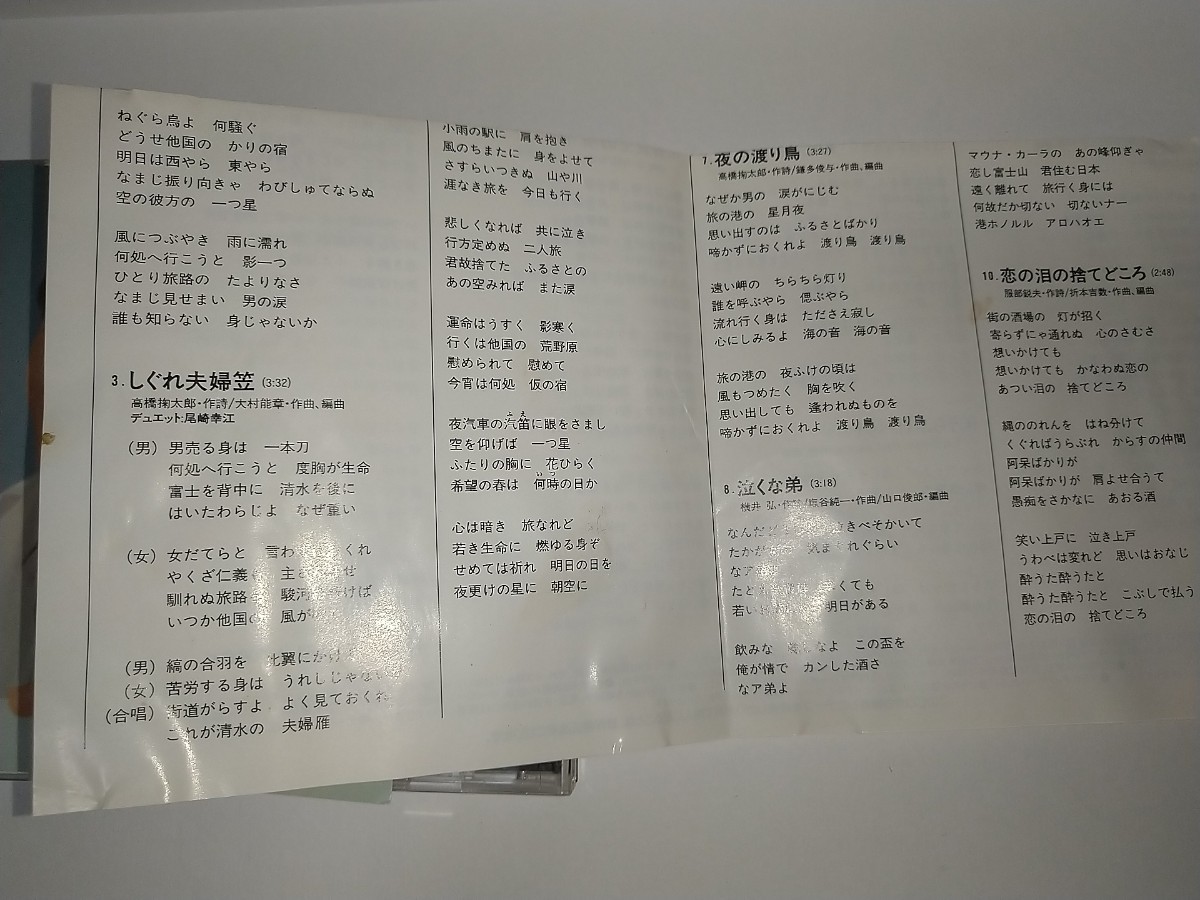 ねぐら鳥よ　何騒ぐ
どうせ他国の　かりの宿
明日は西やら　東やら
なまじ振り向きゃ　わびしゅてならぬ
空の彼方の　一つ星
風につぶやき　雨に濡れ
何処へ行こうと　影一つ
ひとり旅路の　たよりなさ
なまじ見せまい　男の涙
誰も知らない　身じゃないか
3.しぐれ夫婦笠(3:32)
高橋掬太郎・作詩/大村能章・作曲、編曲
デュエット:尾崎幸江
(男) 男売る身は　一本刀
何処へ行こうと　度胸が生命
富士を背中に　清水を後に
はいたわらじよ　なぜ重い
(女) 女だてらと　言わ くれ
やくざ仁義 主 せ
馴れぬ旅路 駿河 けば
いつか他国の　風が
(男) 縞の合羽を　比翼にかけ
(女) 苦労する身は　うれしじゃない
(合唱) 街道がらすよ　よく見ておくれ
これが清水の　夫婦雁
小雨の駅に　肩を抱き
風のちまたに　身をよせて
さすらいつきぬ　山や川
涯なき旅を　今日も行く
悲しくなれば　共に泣き
行方定めぬ　二人旅
君故捨てた　ふるさとの
あの空みれば　また涙
運命はうすく　影寒く
行くは他国の　荒野原
慰められて　慰めて
今宵は何処　仮の宿
夜汽車の汽笛に眼をさまし
空を仰げば　一つ星
ふたりの胸に　花ひらく
希望の春は　何時の日か
心は暗き　旅なれど
若き生命に　燃ゆる身ぞ
せめては祈れ　明日の日を
夜更けの星に　朝空に
7.夜の渡り鳥(3:27)
高橋掬太郎・作詩/鎌多俊与・作曲、編曲
なぜか男の　涙がにじむ
旅の港の　星月夜
思い出すのは　ふるさとばかり
啼かずにおくれよ　渡り鳥　渡り鳥
遠い岬の　ちらちら灯り
誰を呼ぶやら　偲ぶやら
流れ行く身は　たださえ寂し
心にしみるよ　海の音　海の音
旅の港の　夜ふけの頃は
風もつめたく　胸を吹く
思い出しても　逢われぬものを
啼かずにおくれよ　渡り鳥　渡り鳥
8.泣くな弟(3:18)
桜井 弘・作詩/塩谷純一・作曲/山口俊郎・編曲
なんだ きべそかいて
たかが れぐらい
なア
たと くても
若い 明日がある
飲みな なよ　この盃を
俺が情で　カンした酒さ
なア弟よ
マウナ・カーラの　あの峰仰ぎゃ
恋し富士山　君住む日本
遠く離れて　旅行く身には
何故だか切ない　切ないナー
港ホノルル　アロハオエ
10.恋の泪の捨てどころ(2:48)
服部鋭夫・作詩/折本吉数・作曲、編曲
街の酒場の　灯が招く
寄らずにゃ通れぬ　心のさむさ
想いかけても
想いかけても　かなわぬ恋の
あつい泪の　捨てどころ
縄ののれんを　はね分けて
くぐればうらぶれ　からすの仲間
阿呆ばかりが
阿呆ばかりが　肩よせ合うて
愚痴をさかなに　あおる酒
笑い上戸に　泣き上戸
うわべは変れど　思いはおなじ
酔うた酔うたと
酔うた酔うたと　こぶしで払う
恋の泪の　捨てどころ